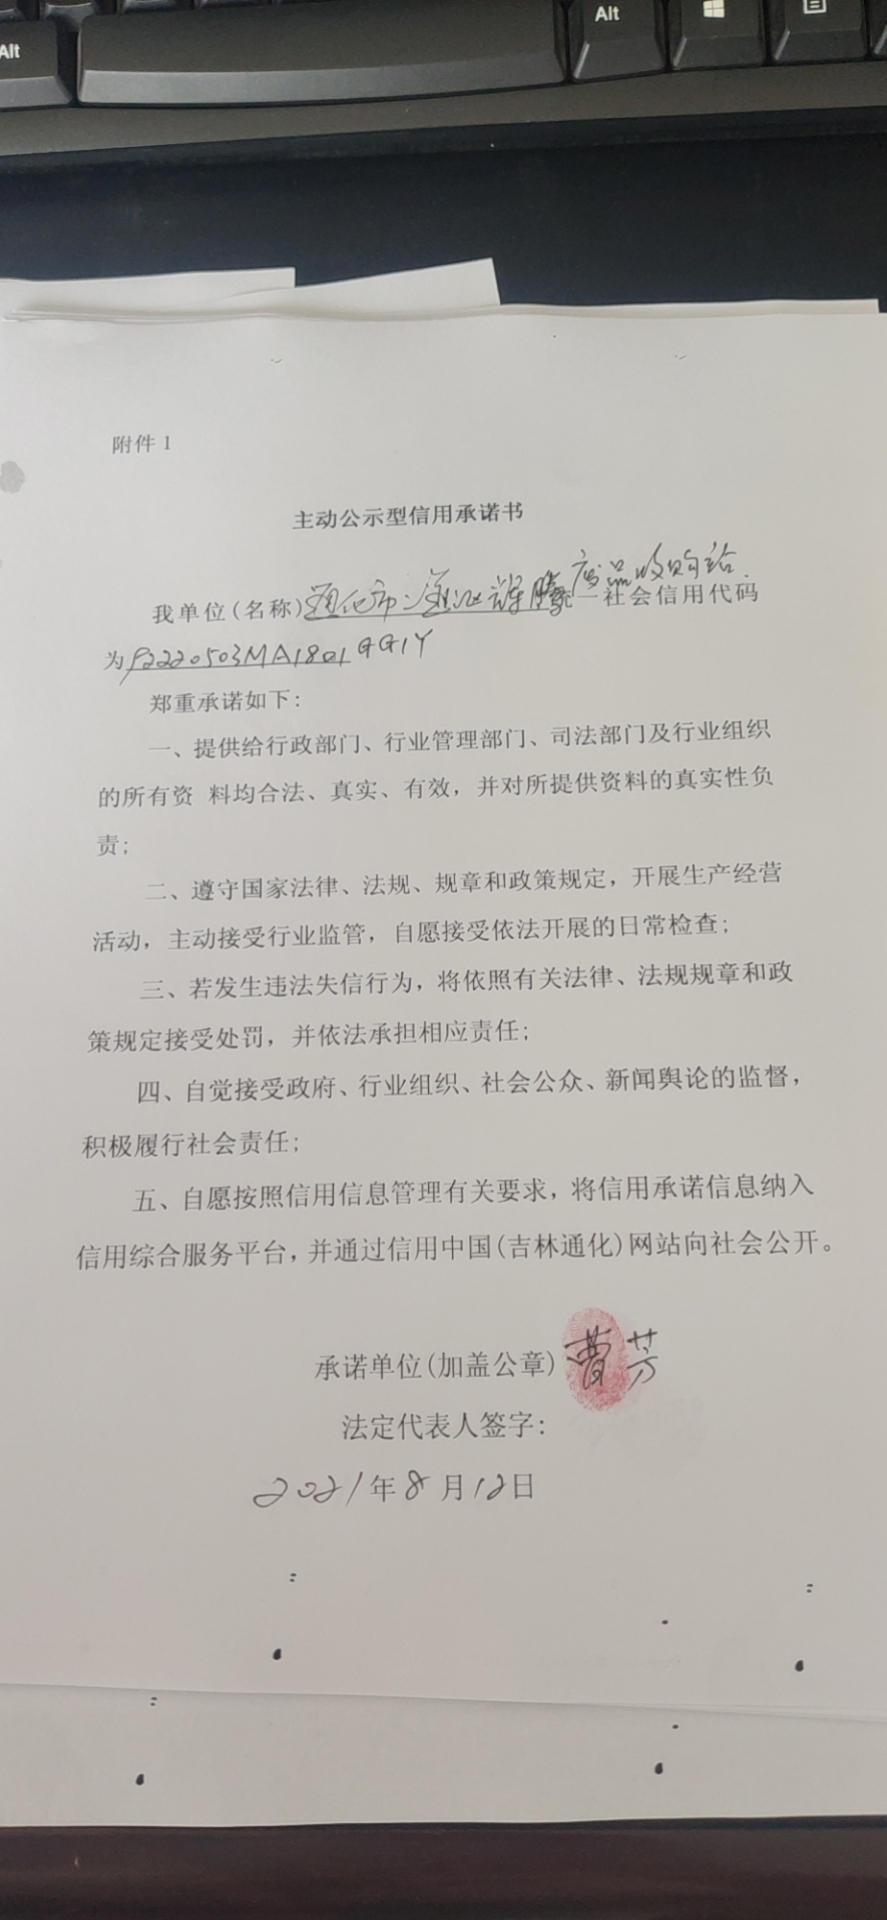 Alt
Alt
附件 1
主动公示型信用承诺书
我单位(名称)通化市二道江辉腾废品收购站统一社会信用代码
为92220503MA1801GG1Y
郑重承诺如下:
一、提供给行政部门、行业管理部门、司法部门及行业组织
的所有资 料均合法、真实、有效，并对所提供资料的真实性负
责;
二、遵守国家法律、法规、规章和政策规定，开展生产经营
活动，主动接受行业监管，自愿接受依法开展的日常检查;
三、若发生违法失信行为，将依照有关法律、法规规章和政
策规定接受处罚，并依法承担相应责任;
四、自觉接受政府、行业组织、社会公众、新闻舆论的监督，
积极履行社会责任;
五、自愿按照信用信息管理有关要求，将信用承诺信息纳入
信用综合服务平台，并通过信用中国(吉林通化)网站向社会公开。
承诺单位(加盖公章) 曹芳
法定代表人签字:
2021年8月12日